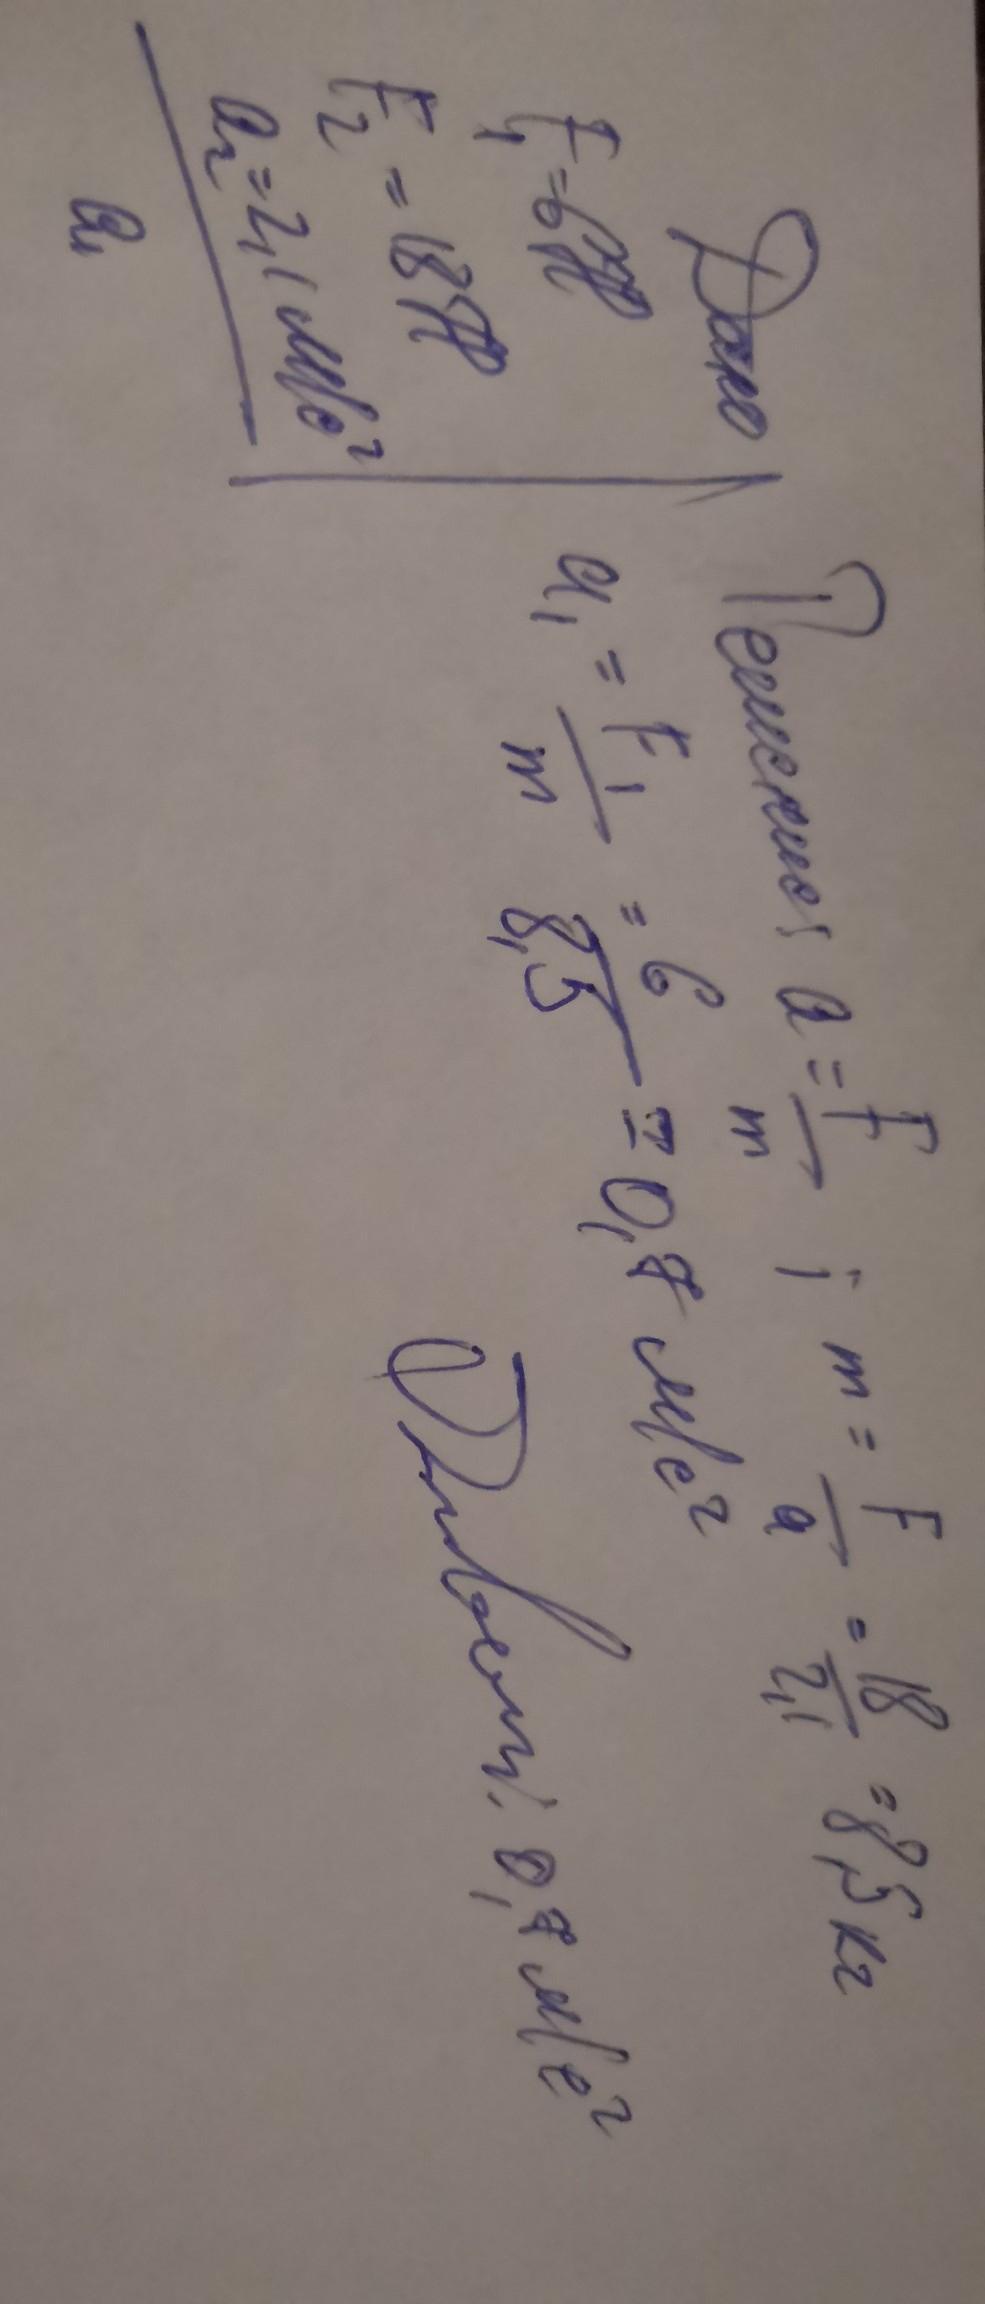 Дано
F₁=6Н
F₂=18Н
a₂=2,1 м/с²
a₁
Решение: a = F/m ; m = F/a = 18/2,1 = 8,5 кг
a₁ = F₁/m = 6/8,5 = 0,7 м/с²
Ответ: 0,7 м/с²